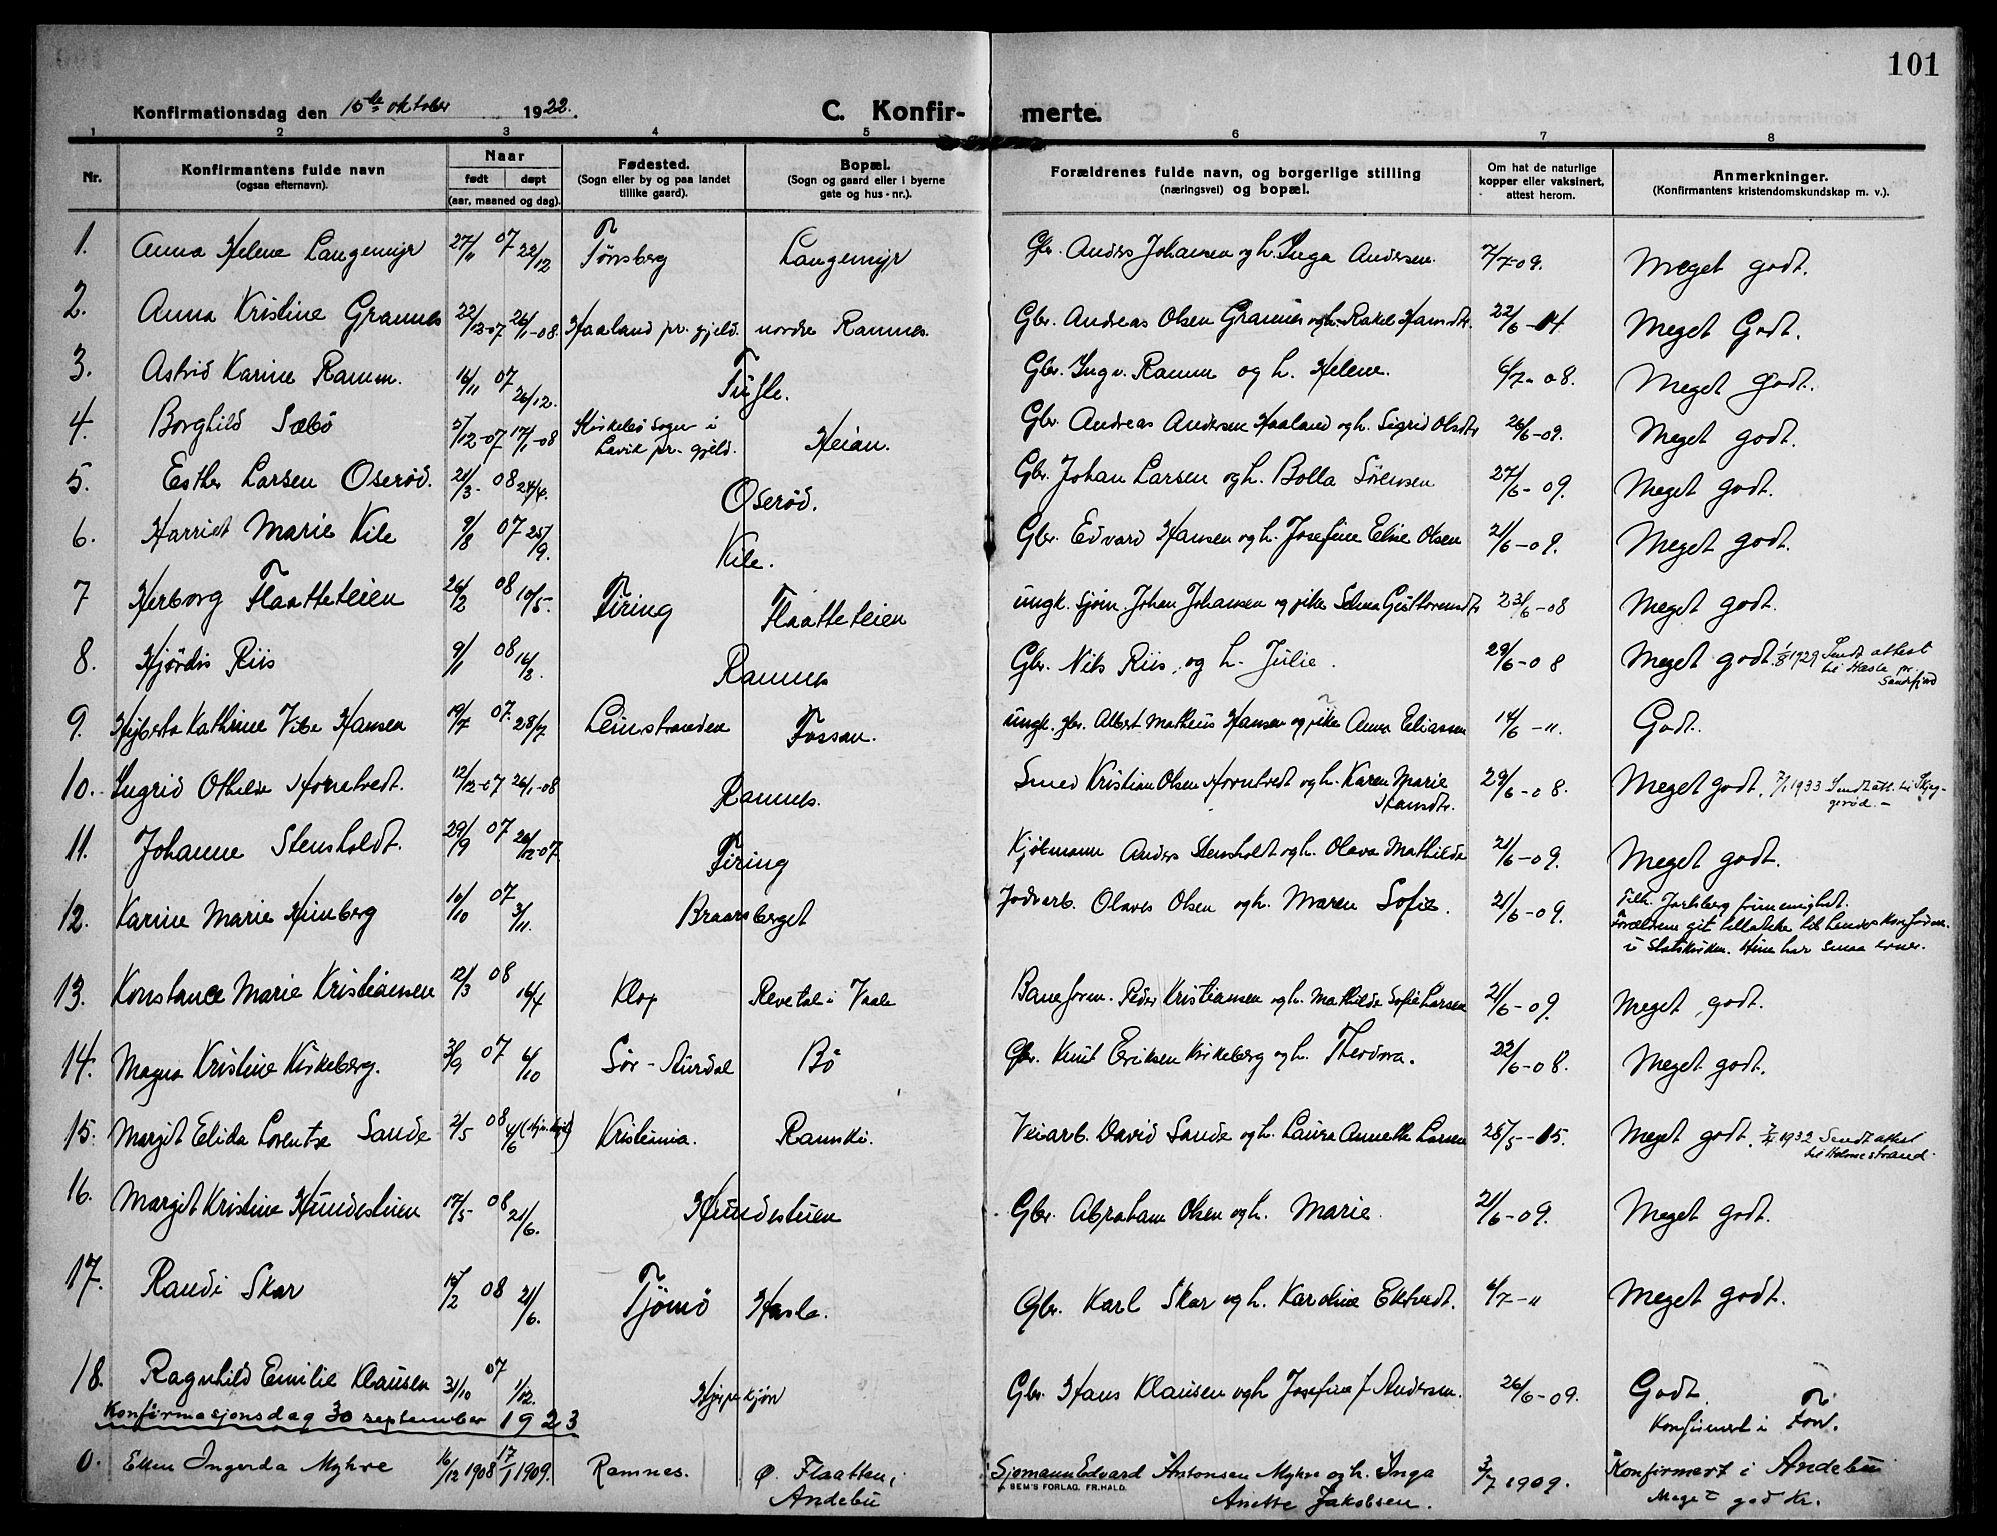 101
Konfirmationsdag den 15de oktober 1922. C. Konfir- merte.
1 2 3 4 5 6 7 8
Nr. Konfirmantens fulde navn (ogsaa efternavn). Naar født døpt (aar, maaned og dag). Fødested. (Sogn eller by og paa landet tillike gaard). Bopæl. (Sogn og gaard eller i byerne gate og hus-nr.). Forældrenes fulde navn, og borgerlige stilling (næringsvei) og bopæl. Om hat de naturlige kopper eller vaksinert, attest herom. Anmerkninger. (Konfirmantens kristendomskundskap m. v.).
1. Anna Helene Langemyr 27/11 07 22/12 Tønsberg Langemyr Gbr. Anders Johansen og h. Inga Andersen. 7/7-09. Meget godt.
2. Anna Kristine Grannes 22/12-07 26/1-08. Haaland pr. gjeld. nordre Ramnes. Gbr. Andreas Olsen Grannes og h. Rakel Hansdtr. 22/6-14. Meget Godt.
3. Astrid Karine Ramm. 16/11 07 26/12. Tufle. Gbr. Ingv. Ramm og h. Helene. 6/7-08. Meget Godt.
4. Borghild Sæbö 5/12-07 17/1-08 Kirkebö Sogn i Lavik pr. gjeld. Heian. Gbr. Andreas Andersen Haaland og h. Sigrid Olsdtr 26/6-09. Meget godt.
5. Esther Larsen Oserød. 21/3- 08 24/4. Oserød. Gbr. Johan Larsen og h. Bolla Sörensen 27/6-09. Meget godt.
6. Harriet Marie Kile 9/8 07 25/9. Kile. Gbr. Edvard Hansen og h. Josefine Eline Olsen 21/6-09. Meget godt.
7 Herborg Flaatteteien 26/2 08 10/5- Firing Flaatteteien ungk. sjöm. Johan Johansen og pike Selma Guttormsdtr 23/6-08 Meget godt.
8. Hjördis Riis 9/1 08 16/2. Ramnes Gbr. Nils Riis, og h. Julie. 29/6-08 Meget godt. 1/8 1929 Sendt attest til Hasle pr. Sandefjord
9. Hjberta Kathrine Vibe Hansen 19/7 07. 28/7 Leinstranden Fossan. ungk. gbr. Albert Matheus Hansen og pike Anna Eliassen 14/6-11. Godt.
10. Ingrid Othelie Horntvedt. 12/12-07 26/1-08 Ramnes. Smed Kristian Olsen Horntvedt og h. Karen Marie Hansdtr. 29/6-08. Meget godt. 7/1 1933 Sendt att. til Skjeggerød.-
11. Johanne Stensholdt. 29/9 07 26/12-07 Firing Kjöbmann Anders Stensholdt og h. Olava Mathilde 21/6-09. Meget godt.
12. Karine Marie Himberg 10/10 07 3/11. Braarsberget Jordarb. Olaves Olsen og h. Maren Sofie. 21/6-09. Tilh. Jarlsberg frimenighet. Forældrene git tillatelse til hendes konfirm. i Statskirken. Hun har smaa evner.
13. Konstance Marie Kristiansen 12/3 08 16/4 Klop Revetal i Vaale Baneform. Peder Kristiansen og h. Mathilde Sofie Larsen 21/6-09. Meget godt.
14. Magna Kristine Kirkeberg. 3/9 07 6/10 Sör-Aurdal Bö Gbr. Knut Eriksen Kirkeberg og h. Theodora. 22/6-08. Meget godt.
15. Margit Elida Lorentse Sande 2/5 08 4/6 Kristiania. Ramski. Veiarb. David Sande og h. Laura Annette Larsen 28/5-15. Meget godt. 1932 Sendt attest til Holmestrand.
16. Margit Kristine Hundsteien 17/5- 08 21/6. Hundesteien Gbr. Abraham Olsen og h. Marie. 21/6-09. Meget godt.
17. Randi Skar 12/2 08 21/6. Tjömö Hasle. Gbr. Karl Skar og h. Karoline Ektvedt. 6/7-11 Meget godt.
18. Ragnhild Emilie Klausen 31/10 07 1/12. Hjipekjön Gbr. Hans Klausen og h Josefine f Andersen. 26/6-09. Godt Konfirmert i Fon.
Konfirmasjonsdag 30 september 1923
0. Ellen Ingerda Myhre 16/12 1908 17/1 1909. Ramnes. Ø. Flaatten, Andebu Sjømann Edvard Antonsen Myhre og h. Inga Anette Jakobsen. 3/7 1909. Konfirmert i Andebu Meget god Kr.
SEM'S FORLAG. FR. HALD.